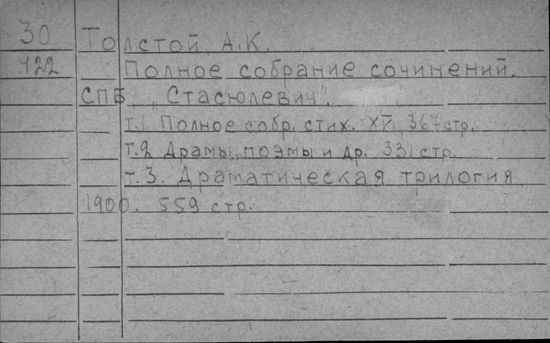 30 Толстой, А.К.
422 Полное собрание сочинений.
СПБ „Стасюлевич".
т.1. Полное собр. стих. XV, 367 стр.
т.2 Драмы, поэмы и др. 331 стр.
т.3. Драматическая трилогия
1900. 559 стр.